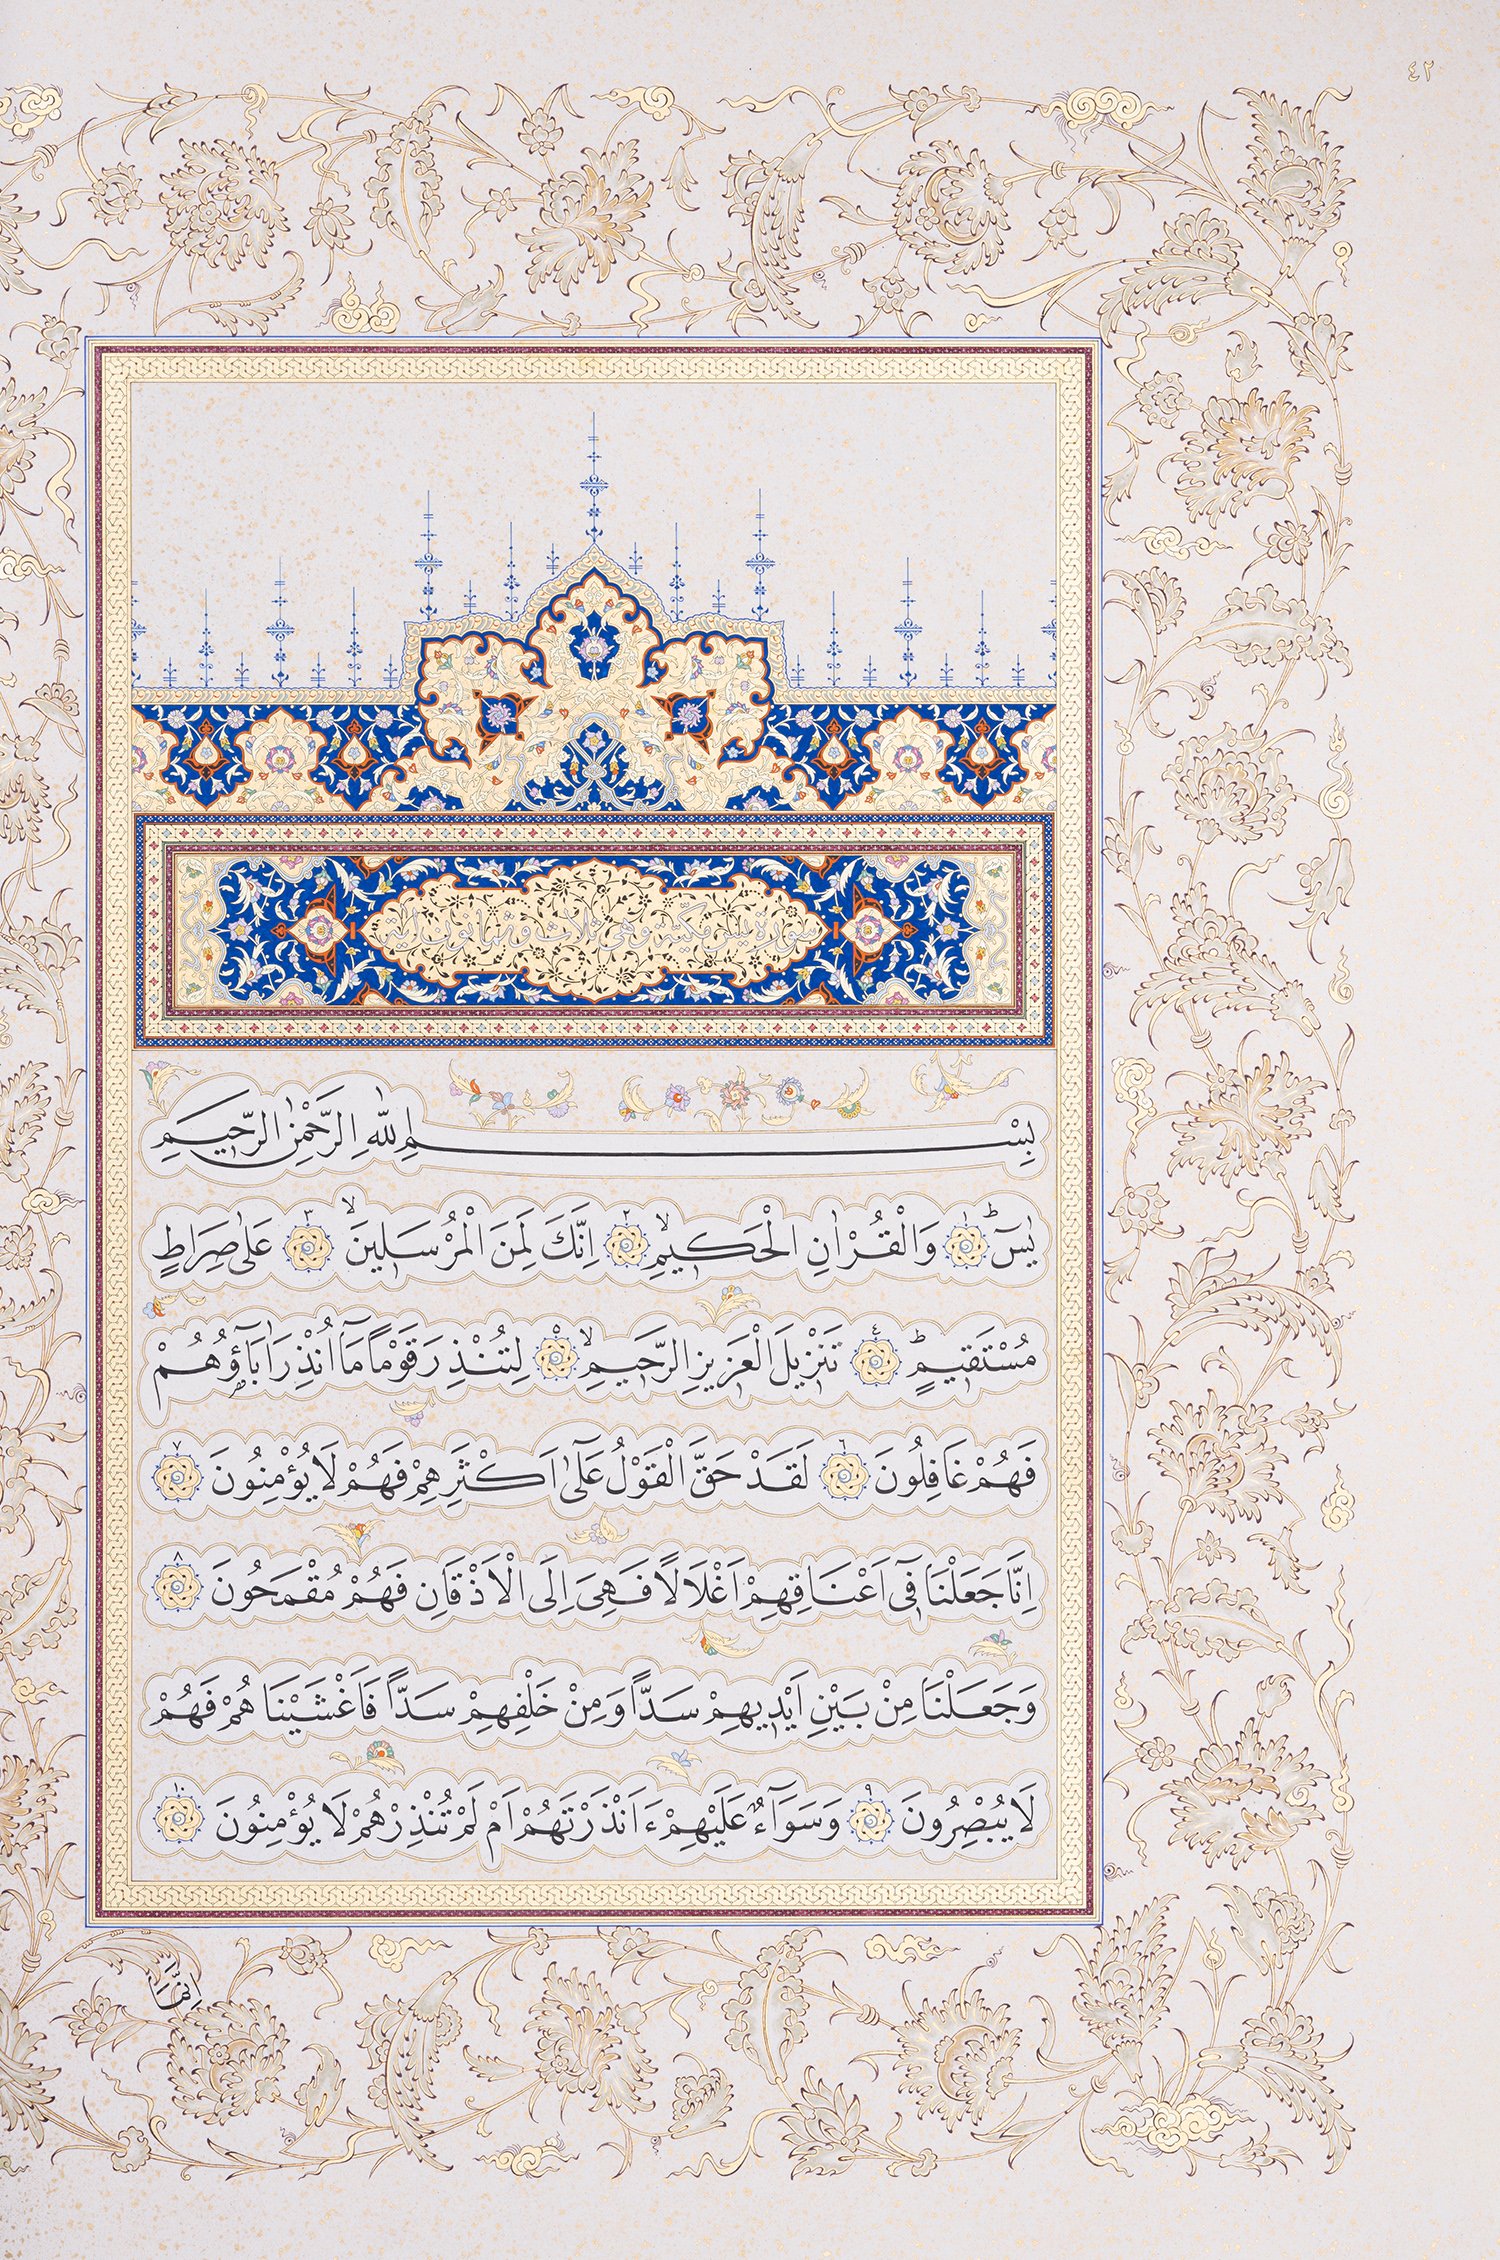 ٤٢
سورة يٰس مكية وهى ثلاث وثمانون اية
بِسْمِ اللّٰهِ الرَّحْمٰنِ الرَّحٖيمِ
يٰسٓ ١ وَالْقُرْاٰنِ الْحَكٖيمِ ٢ اِنَّكَ لَمِنَ الْمُرْسَلٖينَ ٣ عَلٰى صِرَاطٍ
مُسْتَقٖيمٍ ٤ تَنْزٖيلَ الْعَزٖيزِ الرَّحٖيمِ ٥ لِتُنْذِرَ قَوْمًا مَٓا اُنْذِرَ اٰبَٓاؤُ۬هُمْ
فَهُمْ غَافِلُونَ ٦ لَقَدْ حَقَّ الْقَوْلُ عَلٰٓى اَكْثَرِهِمْ فَهُمْ لَا يُؤْمِنُونَ ٧
اِنَّا جَعَلْنَا فٖٓى اَعْنَاقِهِمْ اَغْلَالًا فَهِىَ اِلَى الْاَذْقَانِ فَهُمْ مُقْمَحُونَ ٨
وَجَعَلْنَا مِنْ بَيْنِ اَيْدٖيهِمْ سَدًّا وَمِنْ خَلْفِهِمْ سَدًّا فَاَغْشَيْنَاهُمْ فَهُمْ
لَا يُبْصِرُونَ ٩ وَسَوَٓاءٌ عَلَيْهِمْ ءَاَنْذَرْتَهُمْ اَمْ لَمْ تُنْذِرْهُمْ لَا يُؤْمِنُونَ ١٠
اِنَّمَا